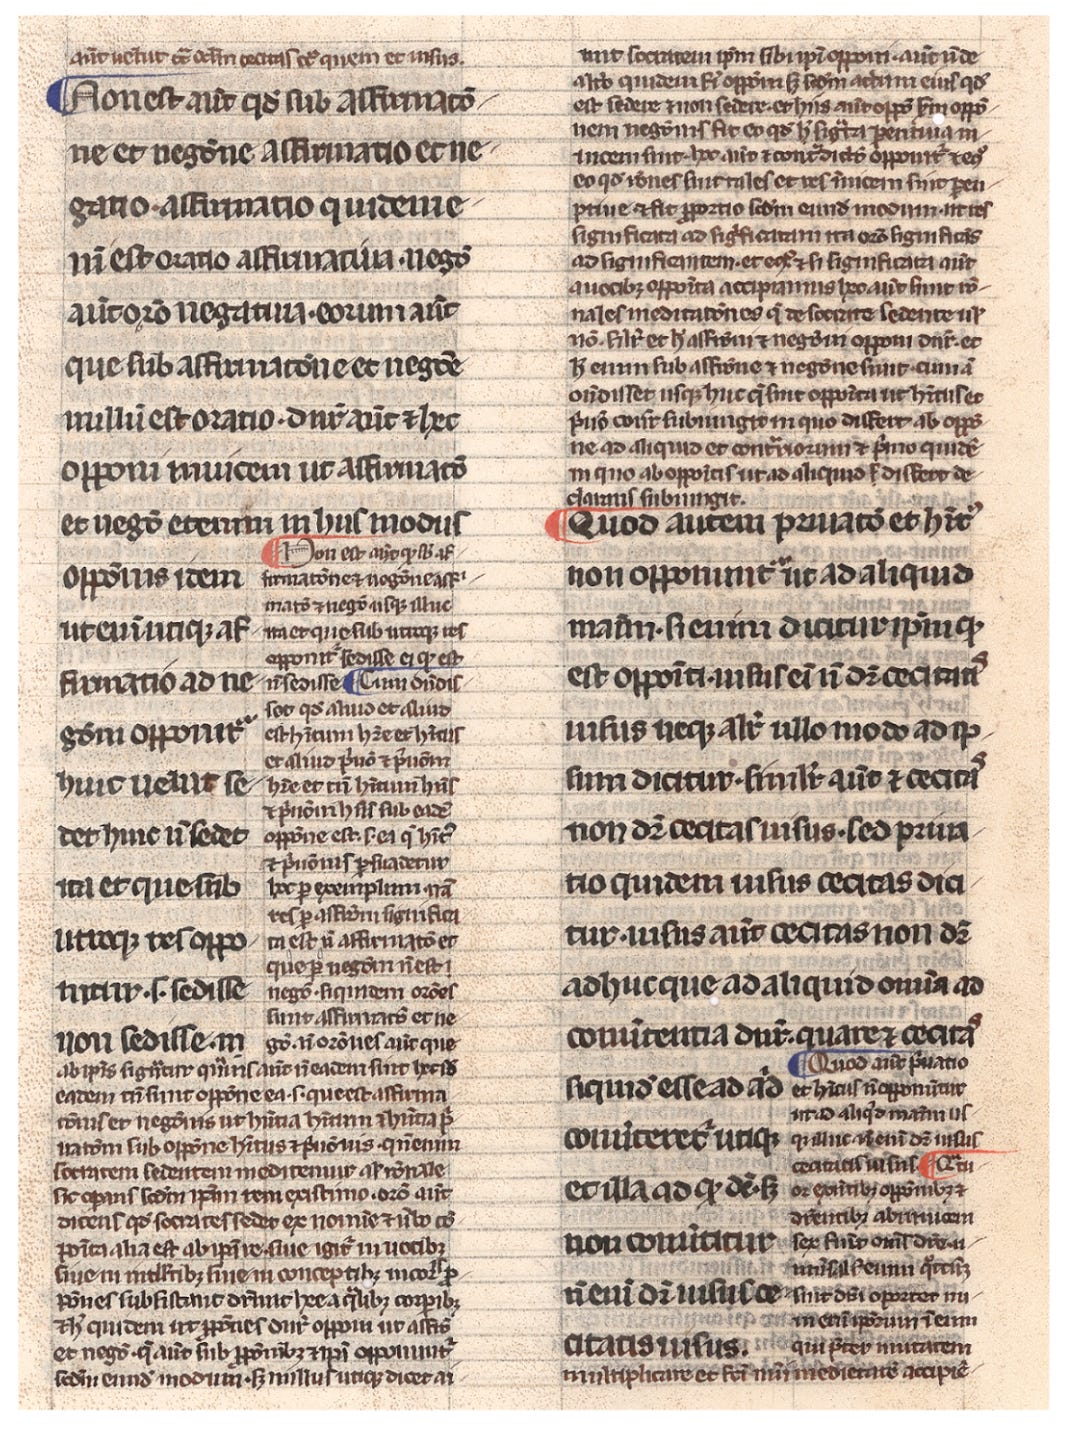 aut̄ uelut cū oclīn cecitas cē quem et uisus.
Non est aut̄ qd̄ sub affirmatō
ne et negōne affirmatio et ne
gatio· affirmatio quidem e
nī est oratio affirmatiua· negō
aut̄ orō negatiua· eorum aut̄
que sub affirmatōne et negōe
nullū est oratio· dnr̄ aut̄ ⁊ hec
opponi inuicem ut affirmatō
et negō etenim in hiis modus
oppōnis idem
ut enī utiqꝫ af
firmatio ad ne
gōm opponit̄
huic uelut se
det huic n̄ sedet
ita et que sub
utroqꝫ res oppo
nitur· s· sedisse
non sedisse· in
Non est aut̄ qꝫ sb̄ af
firmatōne ⁊ negōne affir
matō ⁊ negō usqꝫ illuc
ita et que sub utroqꝫ res
opponit̄ sedisse ei qꝫ est
n̄ sedisse Cum ōndis
set qd̄ aliud et aliud
est hītum hr̄e et hītus
et aliud p̄uō ⁊ p̄uōm
hr̄e et tn̄ hītum hīis
⁊ p̄uōm hīs sub eadē
oppōne est· s· ei q̄ hīt̄
⁊ p̄uōnis ꝑsuadetur
hoc ꝑ exemplum· nā
res ꝑ affirōm significa
ta est n̄ affirmatō et
que ꝑ negōm n̄ est
negō· siquidem orōes
sunt affirmatō et ne
gō· n̄ orōnes aut̄ que
ab ip̄is signr̄tur
eadem tn̄ sunt oppōne ea· s· que est affirma
tōnis et negōnis ut hītia hītum ⁊ hītia p̄
uatōm sub oppōne hītus ⁊ p̄uōnis· qn̄ enim
socratem sedentem meditemur
sic opans scd̄m ip̄am rem existimo· orō aut̄
dicens qd̄ socrates sedet ex nomīe ⁊ ūbo cō
posita alia est ab ip̄a re· siue igit̄ in uocibꝫ
siue in intllc̄tibꝫ siue in conceptibꝫ
pōnes subsistunt
⁊ h̄ quidem ut ꝓpōnes dnr̄ opponi ut affir̄
et negō· q̄ aut̄ sub ꝓpōnibꝫ ⁊ ip̄i opponunt̄
scd̄m eund̄ modum· s̄ nullus utiqꝫ dicet ai
unt socratem ip̄m sibi ip̄i opponi· aut̄ n̄ de
quidem s̄i oppōni s̄ scd̄m actum eius qd̄
est sedere ⁊ non sedere· et hiis aut̄ oppō s̄m oppō
nem negōnis fit eo qd̄ h̄ sigr̄ta ꝑemtiua in
inicem sunt· hoc aut̄ ⁊ cont̄dictō opponit̄
eo qd̄ rōnes sunt tales et res īnuicem sunt ꝑem
ptiue ⁊ fit ꝓportio scd̄m eund̄ modum· ut res
significata ad sigr̄ficatam ita orō significās
ad significantem· et ⁊ si significata aut̄
a uocibꝫ oppōita accipiamus hoc aut̄ sunt rō
nales meditatōnes q̄ de socrate sedente uł
nō· silr̄ et h̄ affirm̄ ⁊ negōm opponi dnr̄· et
h̄ enim sub affirōne ⁊ negōne sunt· cum ā
ondisset usqꝫ huc q̄ sunt oppōita ut hītus et
p̄uō subiungit in quo differt ab oppō
ne ad aliquid et cont̄riorum ⁊ p̄mo quidē
in quo ab oppōitis ut ad aliquid s̄ differt de
clarans subiungit.
Quod autem priuatō et hīt̄
non opponunt̄ ut ad aliquid
maīn· si enim dicitur ipm qꝫ
est oppōiti· uisus eī n̄ dr̄ cecitatis
uisus neqꝫ alr̄ ullo modo ad ip
sum dicitur· simlr̄ aut̄ ⁊ cecitas
non dr̄ cecitas uisus· sed priua
tio quidem uisus cecitas dici
tur· uisus aut̄ cecitas non dr̄
adhuc que ad aliquid omīa ad
conūtentia dnr̄· quare ⁊ cecitas
siquid esse ad aīd
conūteret̄ utiqꝫ
et illa ad qꝫ dr̄· s̄
non conūtitur
n̄ enī dr̄ uisus ce
citatis uisus.
Quod aut̄ p̄uatio
et hītus n̄ opponūtur
ut ad aliqd̄ maīn us
qꝫ illuc n̄ enī dr̄ uisus
cecitatis uisus. Qtu
or exn̄tibꝫ oppōnibꝫ ⁊
dr̄entibꝫ abinuicem
sex fiunt om̄s dr̄e· u
niuslɫ enim
sunt dr̄i oportet nu
m enī ipōrum n̄ enim
qui p̄ter unitatem
multiplicare et fc̄i medietatē accipiē